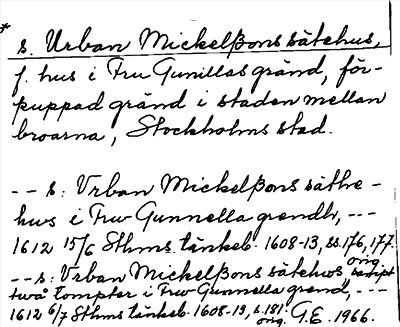 * s. Urban Mickelßons sätehus,
f. hus i Fru Gunillas gränd, för-
puppad gränd i staden mellan
broarna, Stockholms stad.
-- s: Vrban Mickelßons säthe-
hws i Frw Gunnella grendh, ---
1612 15/6 Sthms tänkeb. 1608-13, ss. 176, 177.
orig.
-- s: Vrban Mickelßons sätehws sampt
twå tompter i Frw Gunnella grend, ---
1612 6/7 Sthms tänkeb. 1608-13, s. 181. G.E. 1966.
orig.